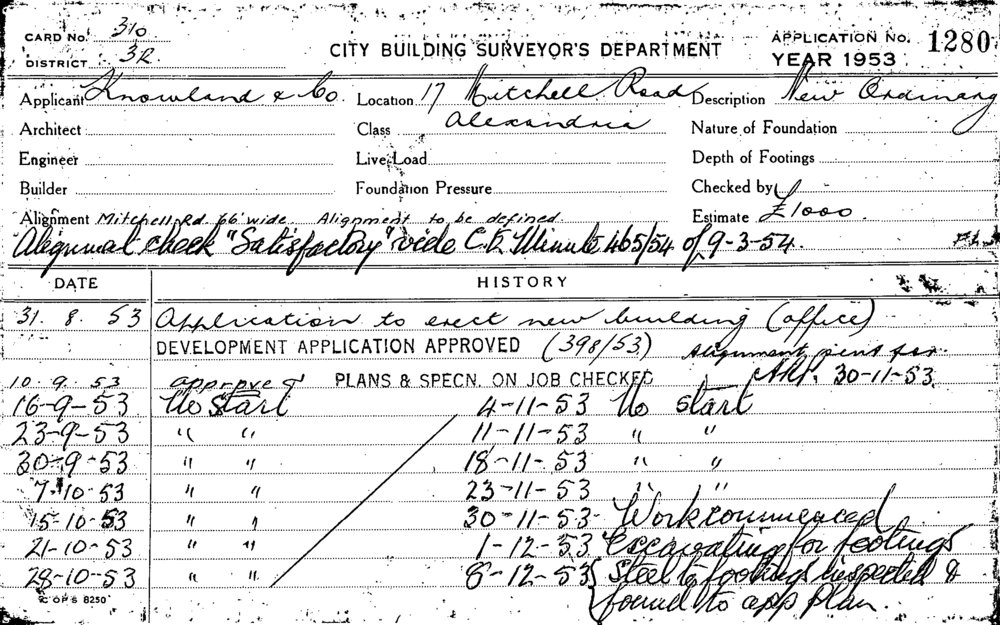 CARD No. 310
DISTRICT 3R
CITY BUILDING SURVEYOR'S DEPARTMENT
APPLICATION No. 1280
YEAR 1953
Applicant Knowland & Co. Location 17 Mitchell Road Description New Ordinary
Architect Class Alexandria Nature of Foundation
Engineer Live Load Depth of Footings
Builder Foundation Pressure Checked by
Alignment Mitchell Rd. 66' wide. Alignment to be defined. Estimate £1000
Alignmal check "Satisfactory" vide C.E. Minute 465/54 of 9-3-54.
DATE HISTORY
31. 8. 53 Application to erect new building (office)
DEVELOPMENT APPLICATION APPROVED (398/53) Alignment sent for
10. 9. 53 approved PLANS & SPECN. ON JOB CHECKED 30-11-53
16-9-53 No Start 4-11-53 No start
23-9-53 " " 11-11-53 " "
30-9-53 " " 18-11-53 " "
7-10-53 " " 23-11-53 " "
15-10-53 " " 30-11-53- Work commenced
21-10-53 " " 1-12-53 Excavating for footings
28-10-53 " " 8-12-53 { Steel to footings inspected &
found to app plan.
C OPS 8250